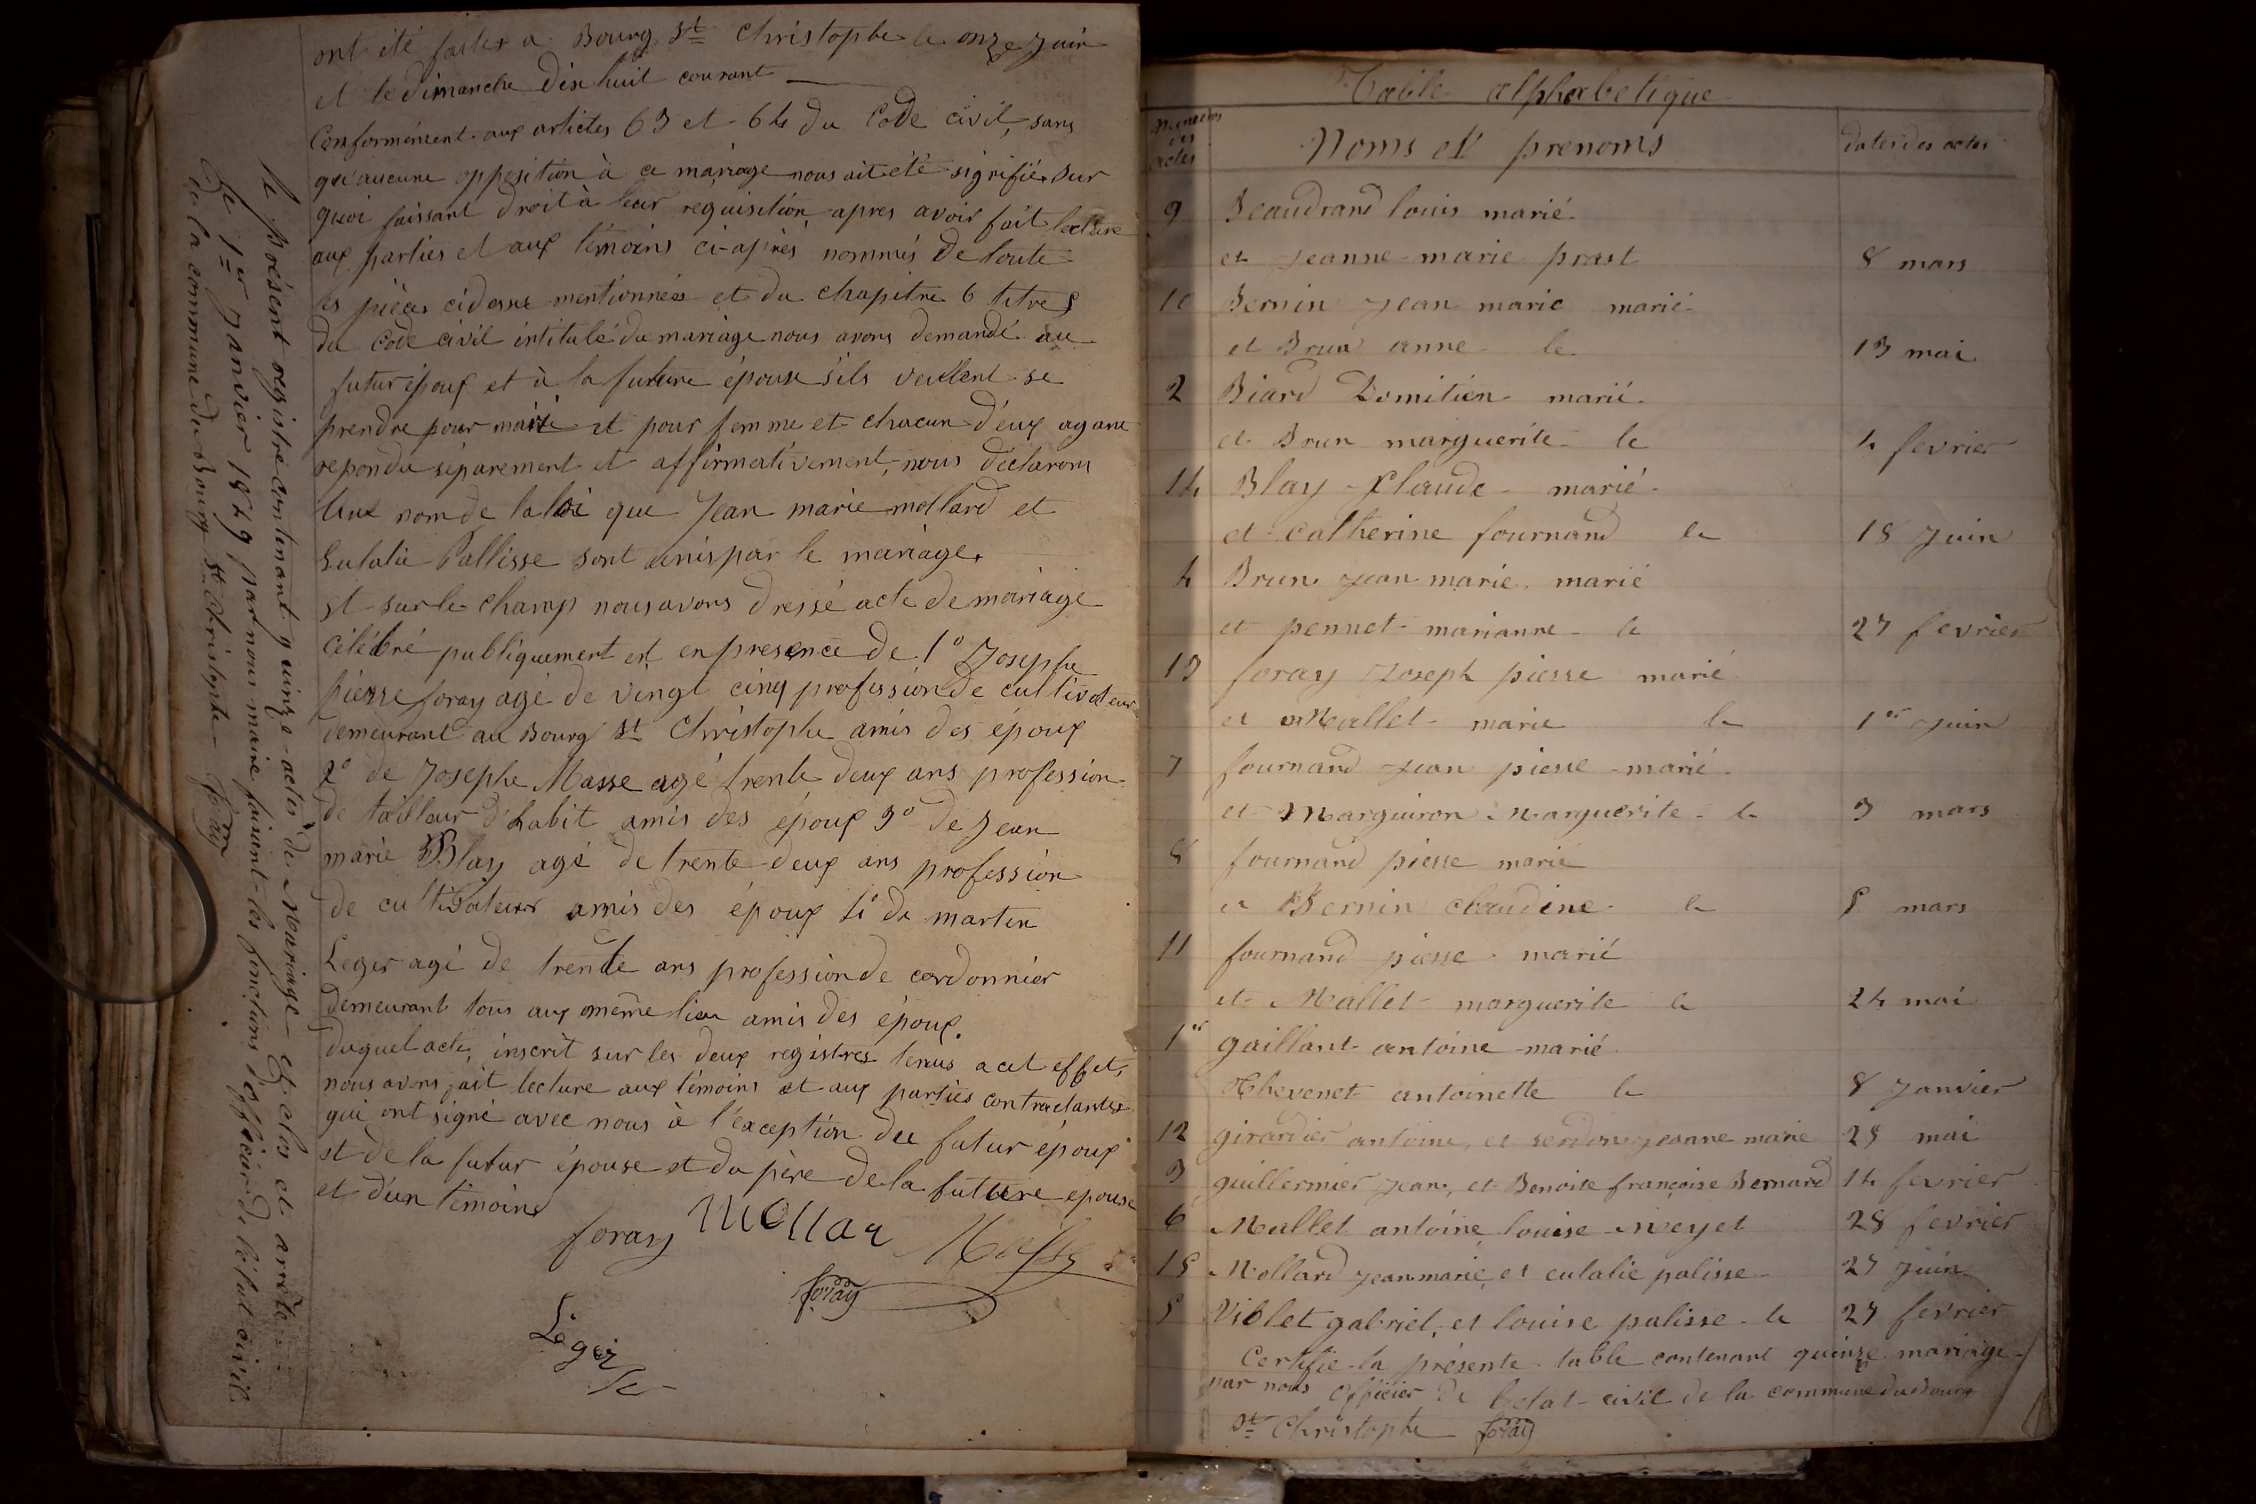 ont été faites a Bourg St Christophe le onze Juin
et le Dimanche Dix huit courant
Conformément aux articles 63 et 64 du Code civil, sans
qu'aucune opposition à ce mariage nous ait été signifiée. Sur
quoi faissant droit à leur requisition apres avoir fait lecture
aux parties et aux témoins ci-après nommés De toute
les pièces cidessus mentionnées et du chapitre 6 titre 5
du Code civil intitulé du mariage nous avons demandé au
futur époux et à la future épouse s'ils veullent se
prendre pour mari et pour femme et chacun d'eux ayant
repondu séparement et affirmativement, nous déclarons
aux nom de la loi que Jean marie mollard et
Eulalie Pallisse sont unis par le mariage.
et sur le champ nous avons dressé acte de mariage
célébré publiquement et en presence de 1° Josephe
pierre foray agé de vingt cinq profession de cultivateur
demeurant au Bourg St Christophe amis des époux
2° de Josephe Masse agé trente deux ans profession
de tailleur d'habit amis des époux 3° de Jean
marie Blay agé de trente deux ans profession
de cultivateur amis des époux 4° du martin
Leger agé de trente ans profession de cordonnier
demeurant tous aux même lieu amis des époux.
duquel acte, inscrit sur les deux registres tenus a cet effet,
nous avons fait lecture aux témoins et aux parties contractantes
qui ont signé avec nous à l'éxception du futur époux
et de la futur épouse et du père de la future epouse
et d'un témoins
foray mollar Masse
foray
Léger
le présent registre contenant quinze actes de Mariage a été clos et arrêté
le 1er Janvier 1849 par nous maire faisant les fonctions d'officier de l'état civil
de la commune du Bourg St Christophe foray
Table alphabetique
numeros des actes Noms et prenoms dates des actes
9 Beaudrand louis marié
et Jeanne marie prost 8 mars
10 Bernin Jean marie marié
et Brun anne le 13 mai
2 Biard Domitien marié
et Brun marguerite le 4 fevrier
14 Blay Claude marié
et catherine fournand le 18 Juin
4 Brun Jean marie marié
et pennet marianne le 27 fevrier
13 foray Joseph pierre marié
et Mallet marie le 1er Juin
7 fournand Jean pierre marié
et Marguiron Marguerite le 3 mars
8 fournand pierre marié
et Bernin claudine le 5 mars
11 fournand pierre marié
et Mallet marguerite le 24 mai
1er gaillant antoine marié
Thevenet antoinette le 8 Janvier
12 girardier antoine, et serdon Jeanne marie 25 mai
3 guillermier Jean, et Benoite françoise Bernard 14 fevrier
6 Mallet antoine louise Meyet 28 fevrier
15 Mollard Jean marie et eulalie palisse 27 Juin
5 Violet gabriel, et louise palisse le 27 fevrier
Certifie la présente table contenant quinze mariage
par nous officier de l'etat civil de la commune du Bourg
St Christophe foray